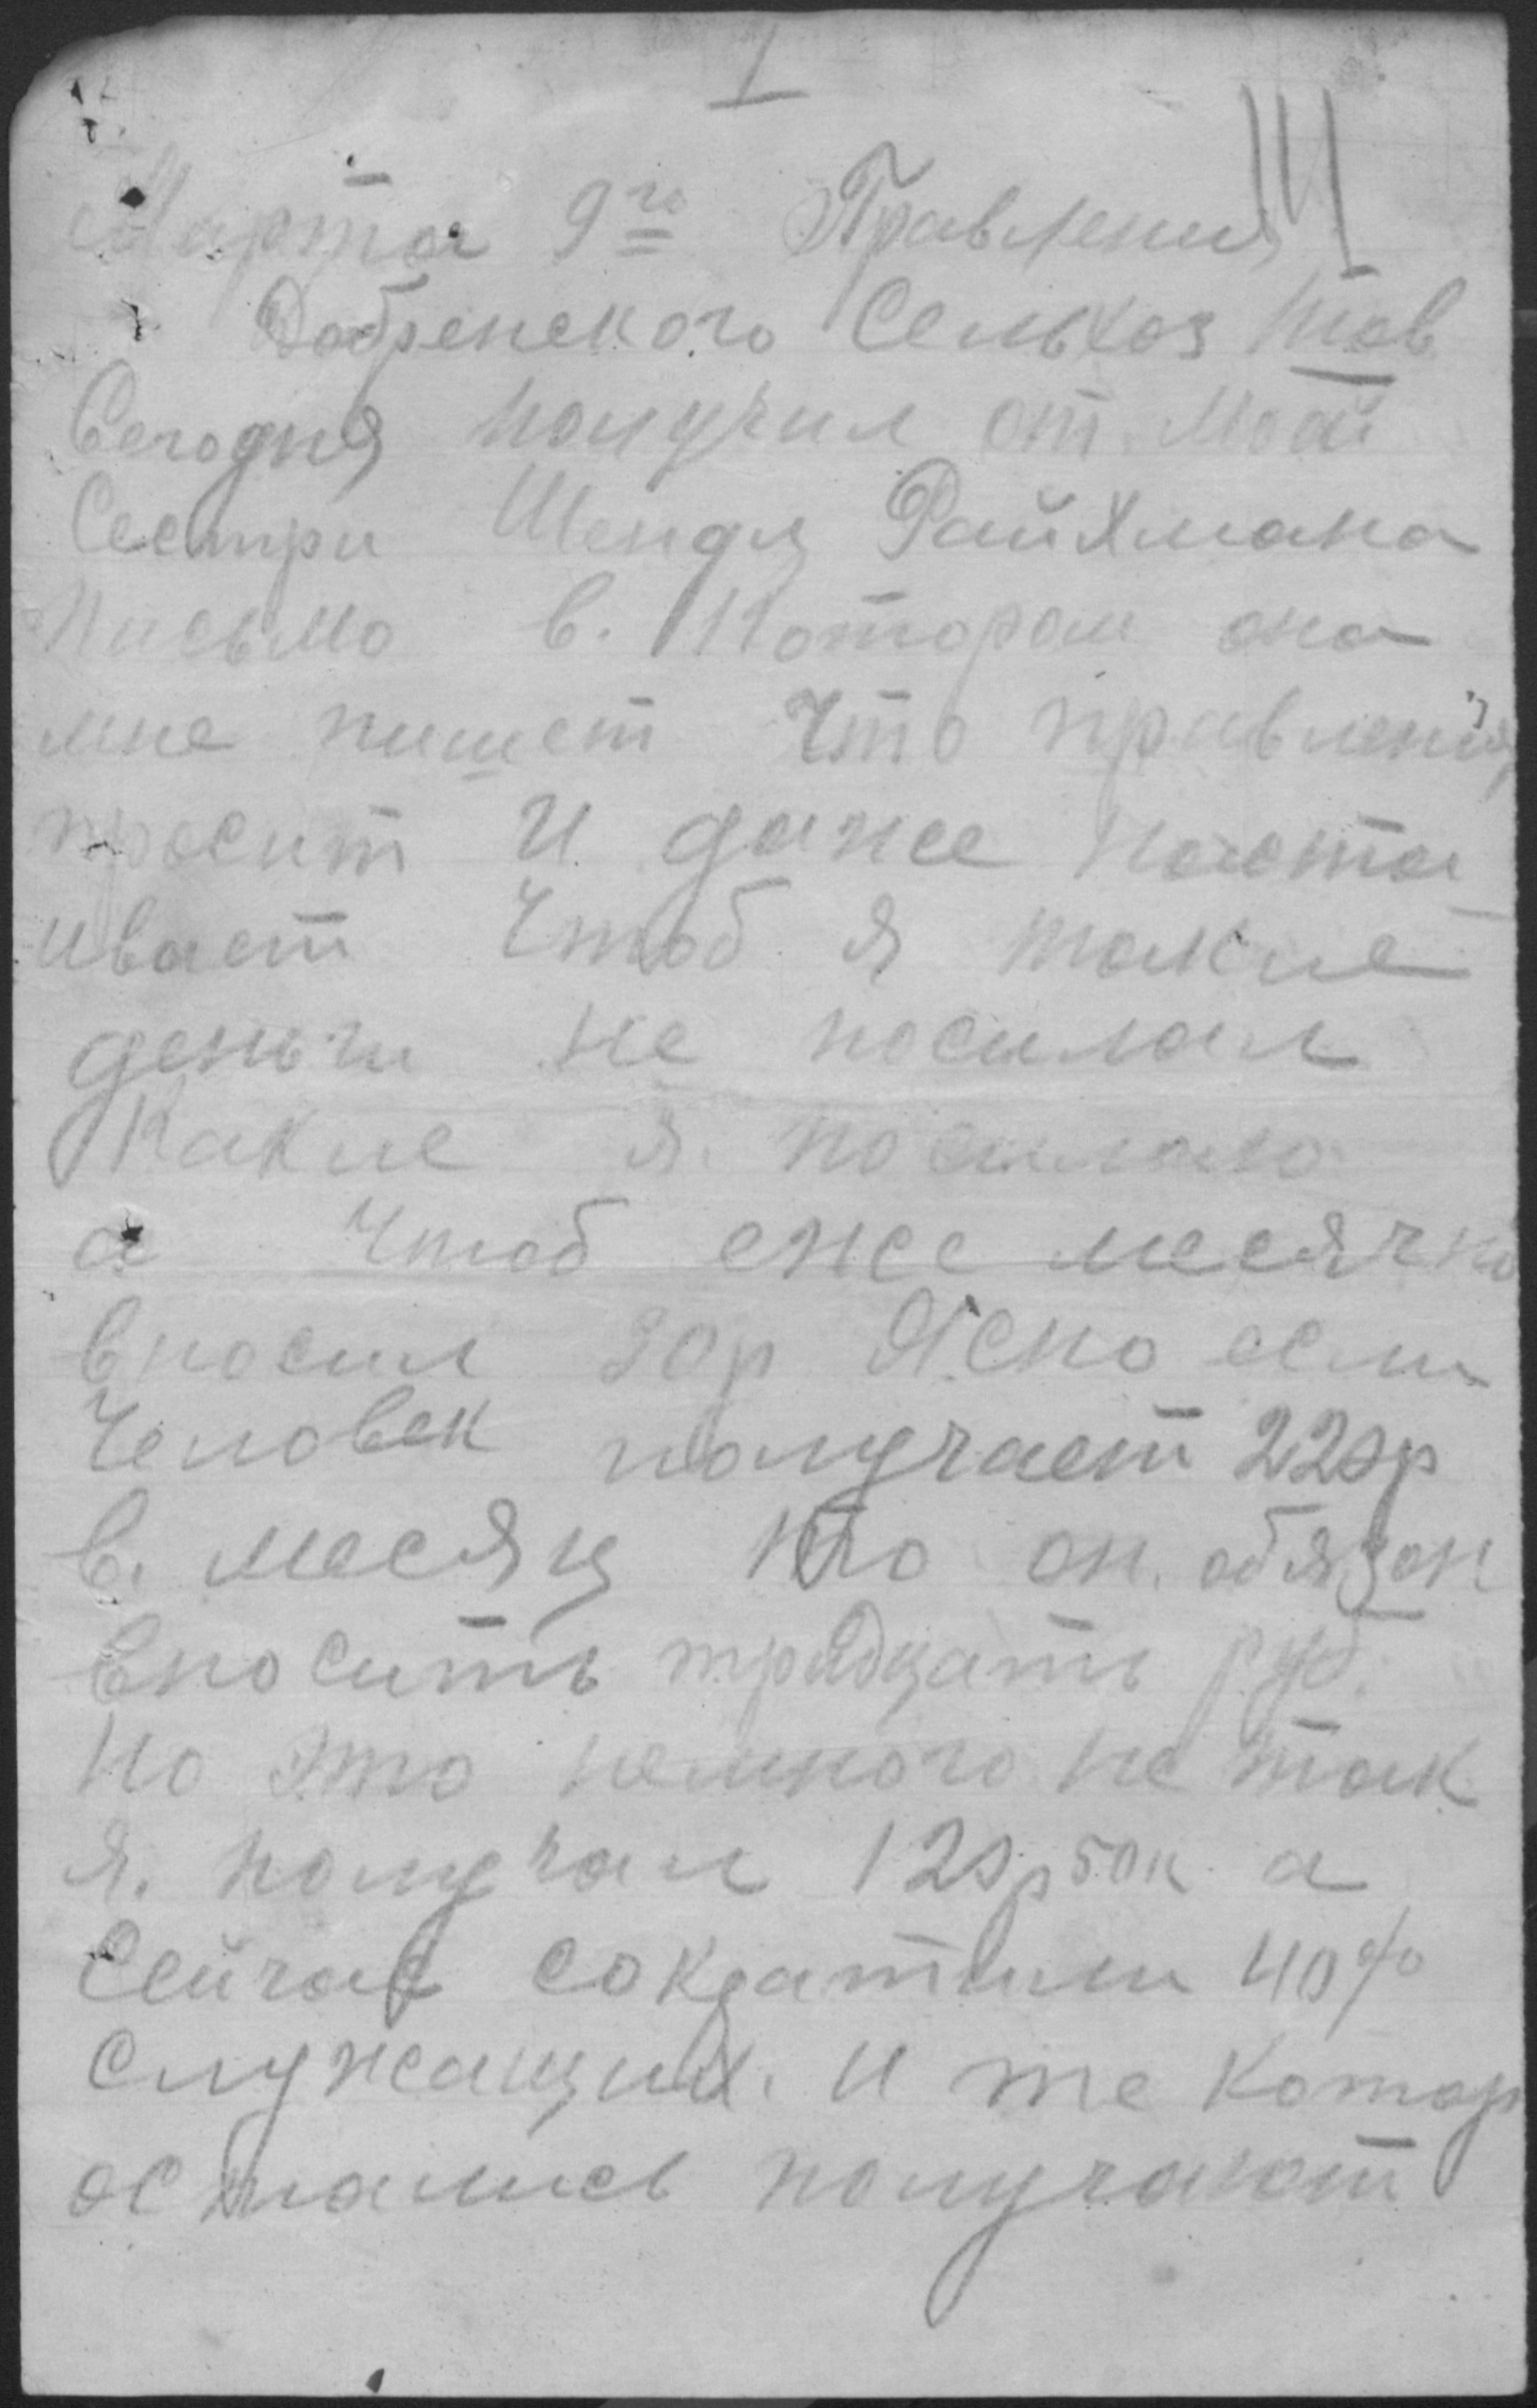 1
Марта 9го Правления
Добренского Сельхоз тов
Сегодня получил от моай
Сестри Шендля Райхмана
Письмо в. Котором она
мне пишет что правления
просит и даже наста
ивает Чтоб я такие
деньги не посилал
Какие я. посилаю
а Чтоб еже месячно
вносил 30р Ясно если
Человек получает 220р
в. месяц то он. обязон
вносить тридцать руб.
но это немного не так
я. получал 120р 50к а
Сейчас сократили 40%
Служащих. и те котор
остались получают